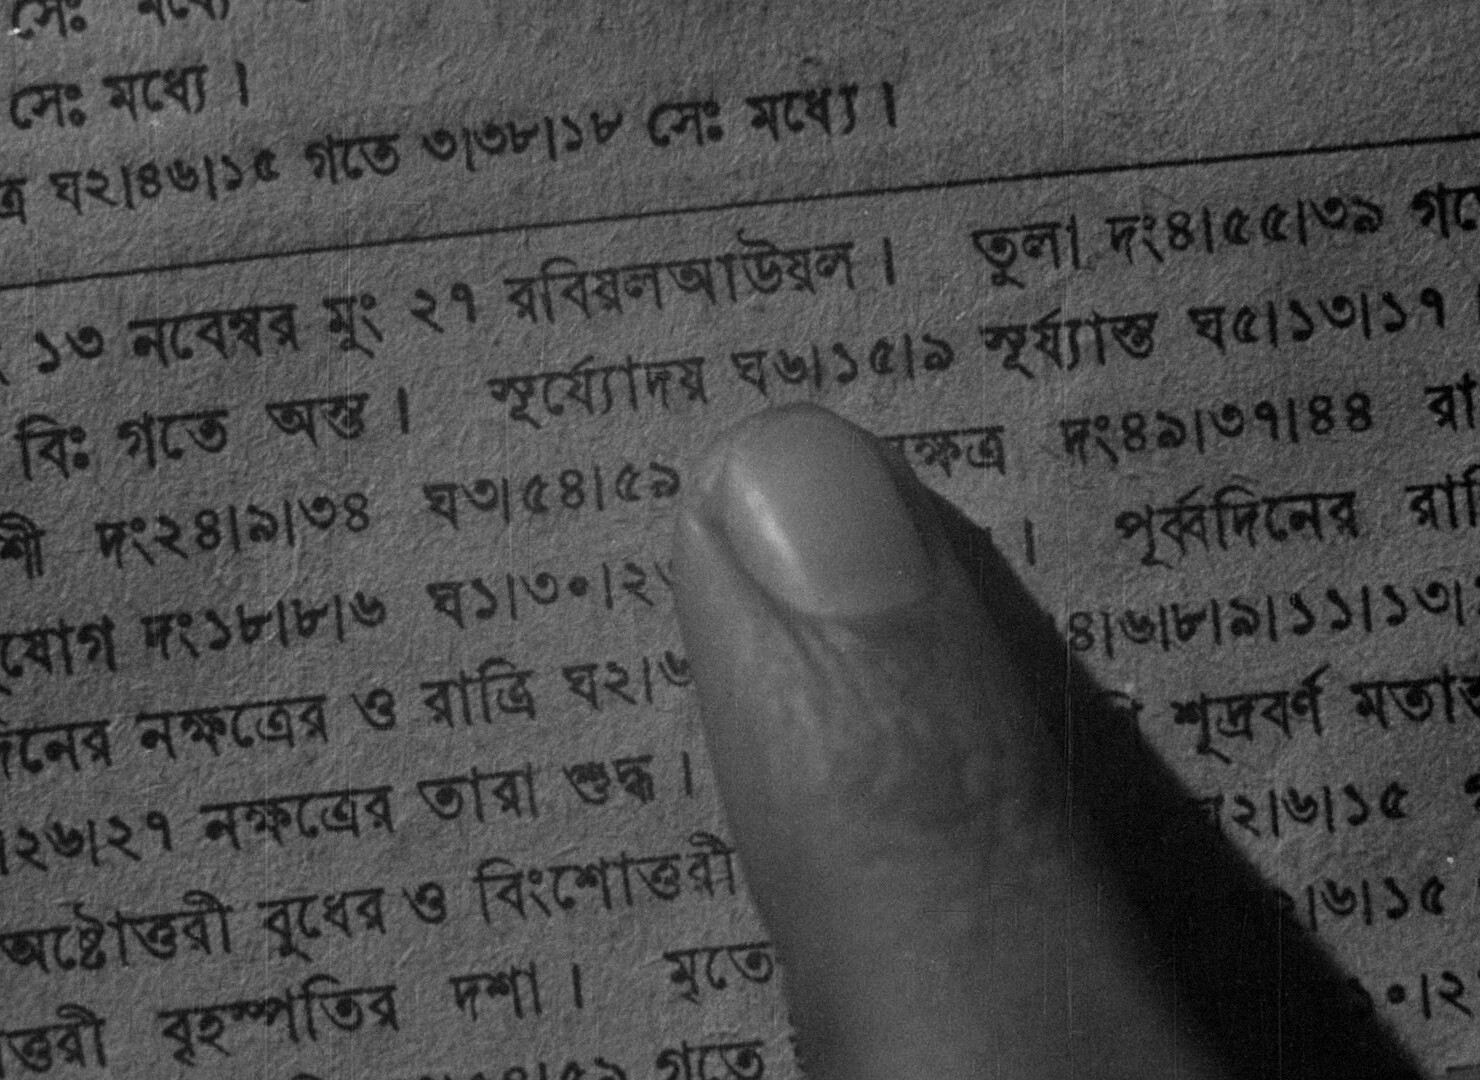 সেঃ মধ্যে
সেঃ মধ্যে ।
ঘ২|৪৬|১৫ গতে ৩|৩৮|১৮ সেঃ মধ্যে ।
১৩ নবেম্বর মুং ২৭ রবিয়লআউয়ল । তুলা দং৪|৫৫|৩৯ গতে
বিঃ গতে অস্ত । সূর্য্যোদয় ঘ৬|১৫|৯ সূর্য্যাস্ত ঘ৫|১৩|১৭
শী দং২৪|৯|৩৪ ঘ৩|৫৪|৫৯ নক্ষত্র দং৪৯|৩৭|৪৪ রা
যোগ দং১৮|৮|৬ ঘ১|৩০|২ । পূর্ব্বদিনের রাত্রি
দিনের নক্ষত্রের ও রাত্রি ঘ২|৬ ৪|৬|৮|৯|১১|১৩|
|২৬|২৭ নক্ষত্রের তারা শুদ্ধ । শূদ্রবর্ণ মতা
অষ্টোত্তরী বুধের ও বিংশোত্তরী ২|৬|১৫
ত্তরী বৃহস্পতির দশা । মৃতে |৬|১৫
গতে ০|২